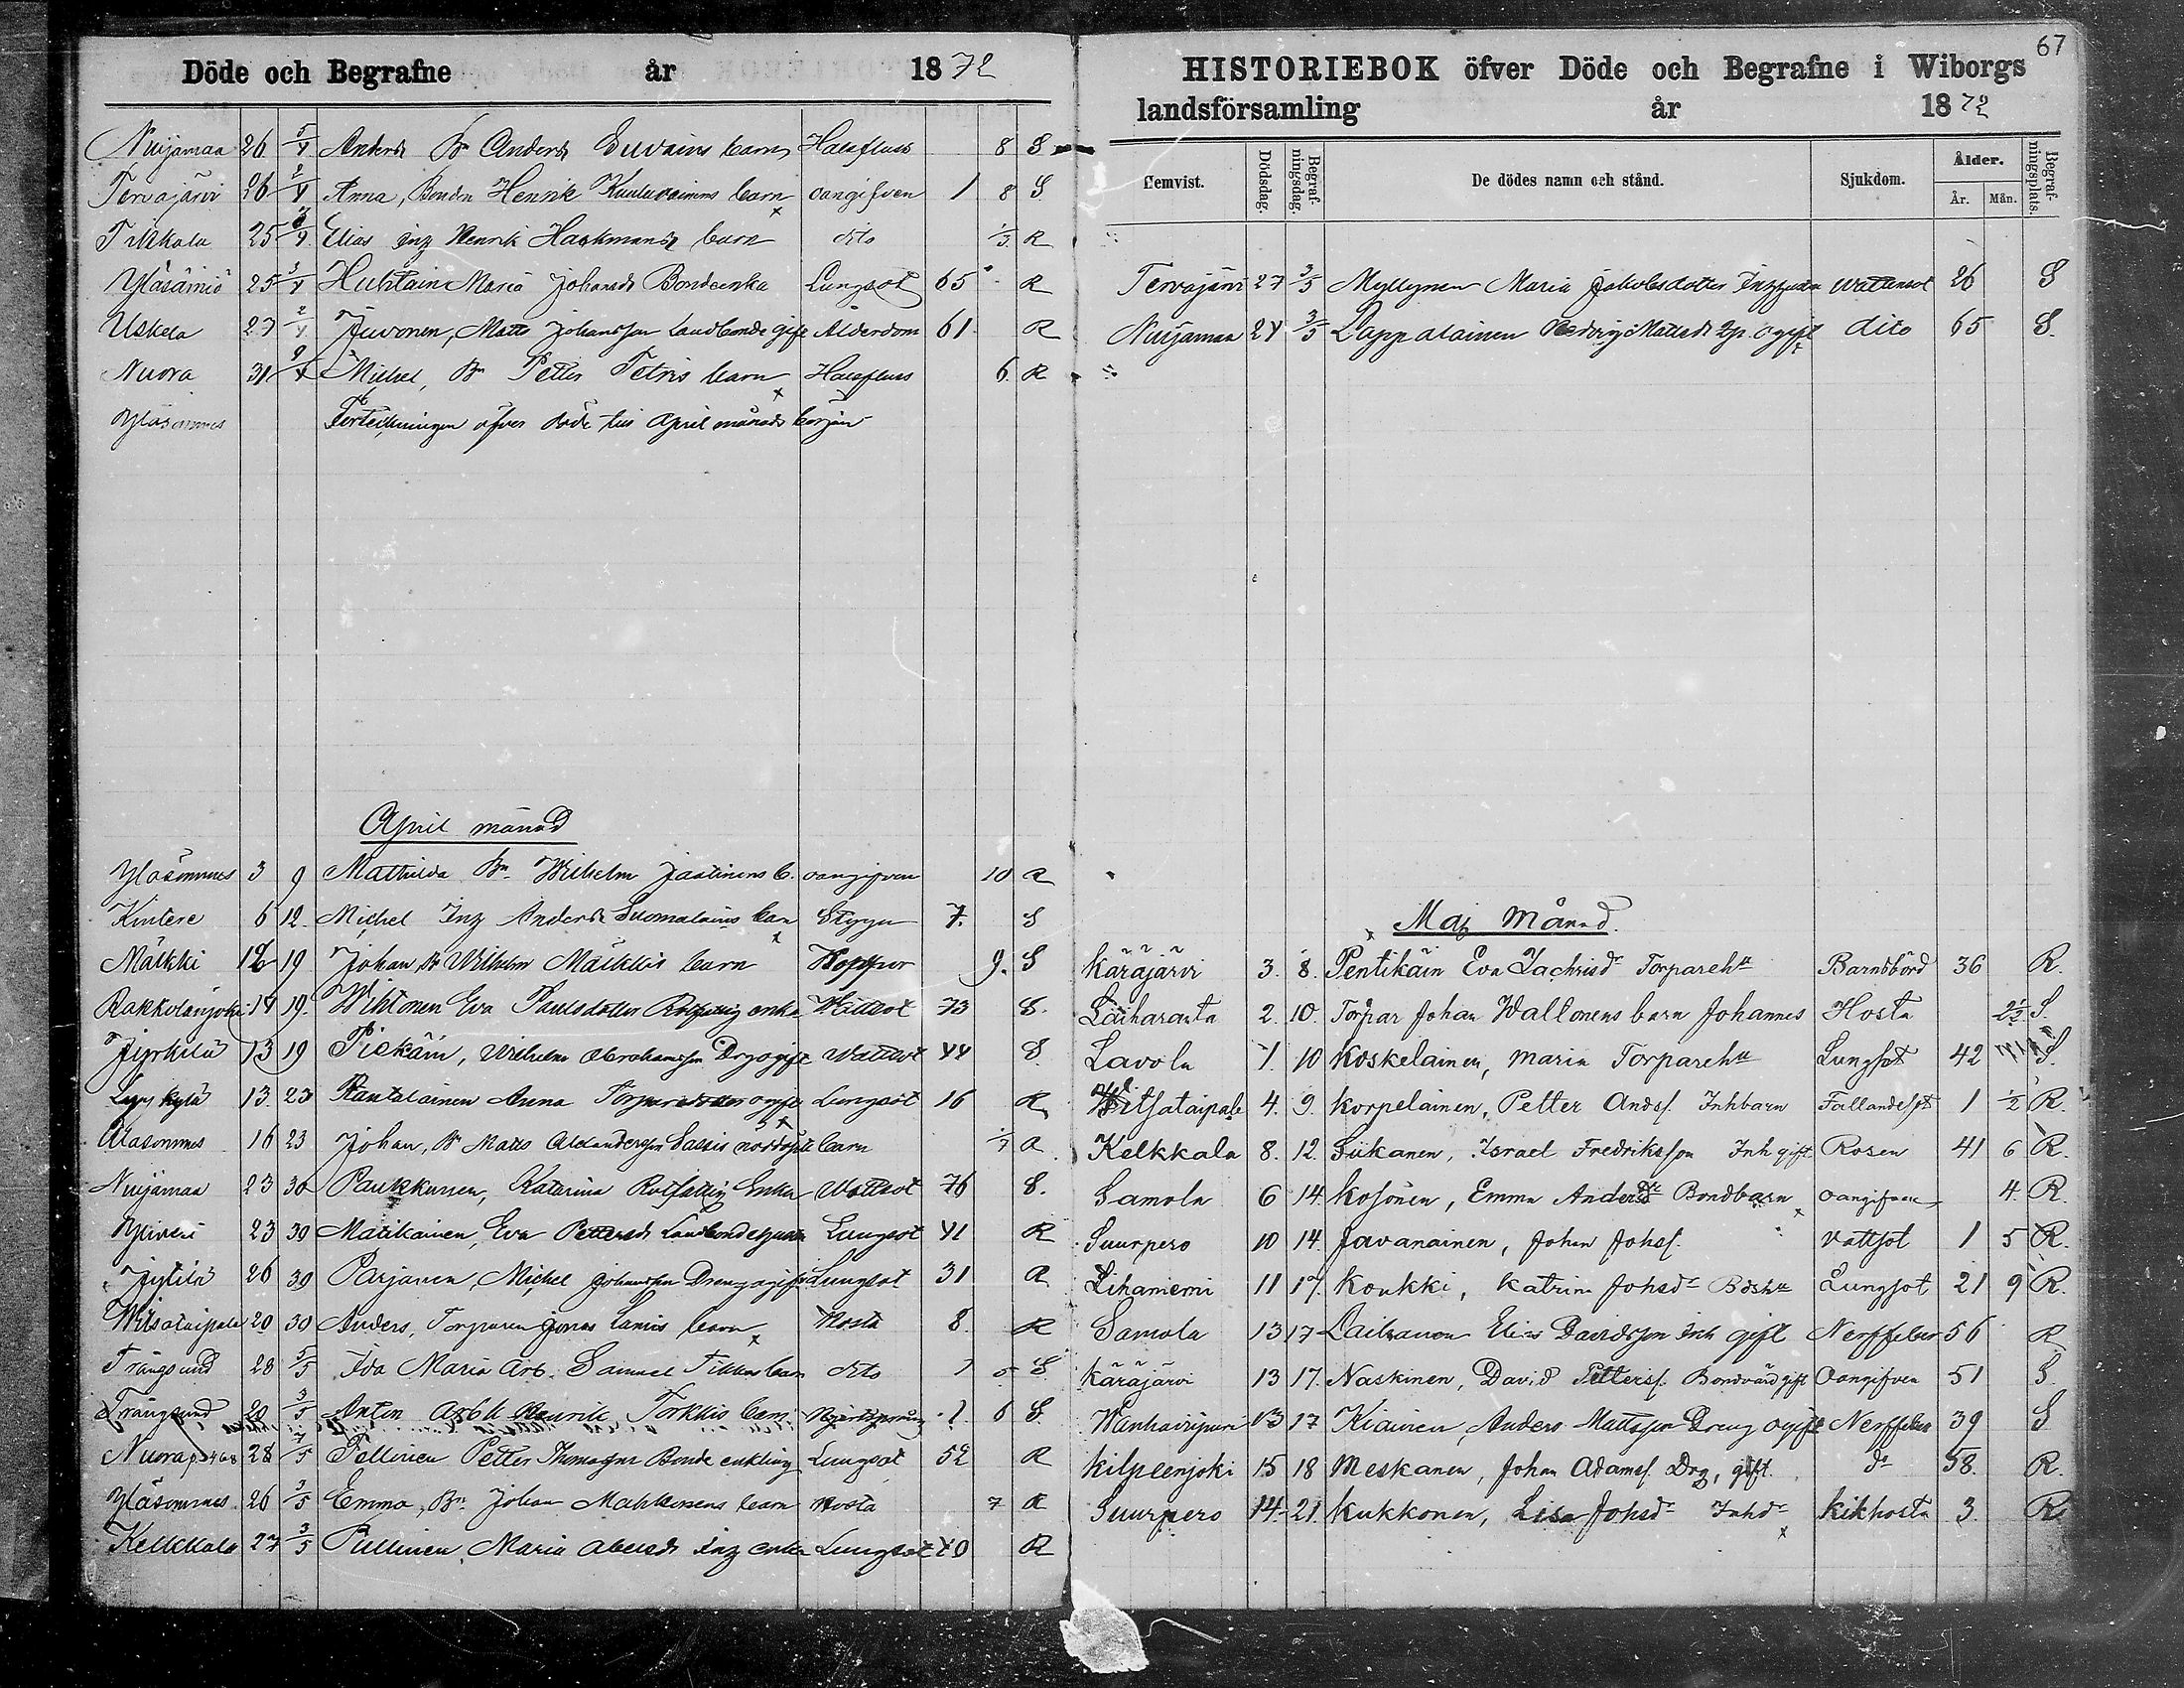 Döde och Begrafne år 1872
Nuijamaa 26 5/4 Anders Bn Anders Suvains barn Halsfluss 8 S
Tervajärvi 26 2/4 Anna, Bonden Henrik Kuuluvainens barn oangifven 1 8 S
Tikkala 25 Elias Inh Henrik Hackmans barn dito 1/3 R
Yläsäiniö 25 3/4 Huhtain Maria Johansdr Bondeenka Lungsot 65 R
Uskela 27 2/4 Juvonen, Matts Johansson Landbonde gift Ålderdom 61 R
Nuora 31 9/4 Michel, Bn Petter Tetris barn Halsfluss 6 R
Yläsommes Förteckningen öfver döde till April månads början
April månad
Yläsommes 3 9 Mathilda Bn Wilhelm Jaatinens b. oangifven 10 R
Kintere 6 12. Michel Inh Anders Suomalains barn Slag 7. S
Mälkki 12 19 Johan, Bn Wilhelm Mälkkis barn Koppor 9. S
Rakkolanjoki 14 19. Wihtonen Eva Paulsdotter Rotfattig enka Wattsot 73 S.
Jyrkilä 13 19 Piekäin, Wilhelm Abrahamsson Drg ogift Wattsot 44 S.
Lyykylä 13. 23 Rantalainen Anna ogift Lungsot 16 R
Alasommes 16 23 Johan, Bn Matts Alexandersson Sassis nöddöpte barn 1/7 R
Nuijamaa 23 30 Paukkunen, Katarina Rotfattig Enka Wattsot 76 S.
23 30 Matikainen, Eva Pettersdr Landbondehustru Lungsot 41 R
Jytilä 26 30 Parjanen, Michel Johansson Dreng ogift Lungsot 31 R
Witsataipale 20 30 Anders, Torparen Jonas barn Hosta 8. R
Trångsund 28 5/5 Ida Maria Arb. Samuel Tikkas barn dito 1 5 S
Trångsund 20 3/5 Anton Arbk Henrik Torkkis barn 6 S.
Nuora 28 7/5 Pellinen Petter Thomasson Bonde enkling Lungsot 52 R
Yläsommes 26 3/5 Emma, Bn Johan Mahkonens barn Hosta 7 R
Kelkkala 27 3/5 Pullinen Maria Abelsdr Inh enka Lungsot 70 R
67
HISTORIEBOK öfver Döde och Begrafne i Wiborgs
landsförsamling år 1872
Hemvist. Dödsdag. Begrafningsdag. De dödes namn och stånd. Sjukdom. Ålder. År. Mån. Begrafningsplats.
Tervajärvi 27 3/5 Myllynen Maria Jakobsdotter Inhustru Wattensot 26 S
Nuijamaa 24 3/5 Lappalainen Hedvig Mattsdr ogift dito 65 S.
Maj Månad.
Käräjärvi 3. 8. Pentikäin Eva Zachrisdr Torpareha Barnsbörd 36 R.
Länharanta 2. 10. Torpar Johan Waltonens barn Johannes Hosta 2 1/2 S.
Lavola 1. 10 Koskelainen, Maria Torpareha Lungsot 42 S.
Witsataipale 4. 9. Korpelainen, Petter Andss. Inhbarn Fallandesot 1 1/2 R.
Kelkkala 8. 12. Siikanen, Israel Fredriksson Inh gift Rosen 41 6 R.
Samola 6 14. Kosonen, Emma Andersdr Bondbarn oangifven 4. R.
Suurpero 10 14. Javanainen, Johan Johss. Vattsot 1 5 R.
Lihaniemi 11 17. Koukki, Katrin Johsdr Bdeha Lungsot 21 9 R.
Samola 13 17 Laihanen Elias Davidsson Inh gift Nerffeber 56 R
Käräjärvi 13 17. Naskinen, David Petterss. Bondvärd gift Oangifven 51 S.
Wanhaviipuri 13 17 Kiainen, Anders Mattsson Dreng ogift Nerffeber 39 S
Kilpeenjoki 15 18 Meskanen, Johan Adamss. Drg, gift. do 58. R.
Suurpero 14. 21. Kukkonen, Lisa Johsdr Inhdr Kikhosta 3. R